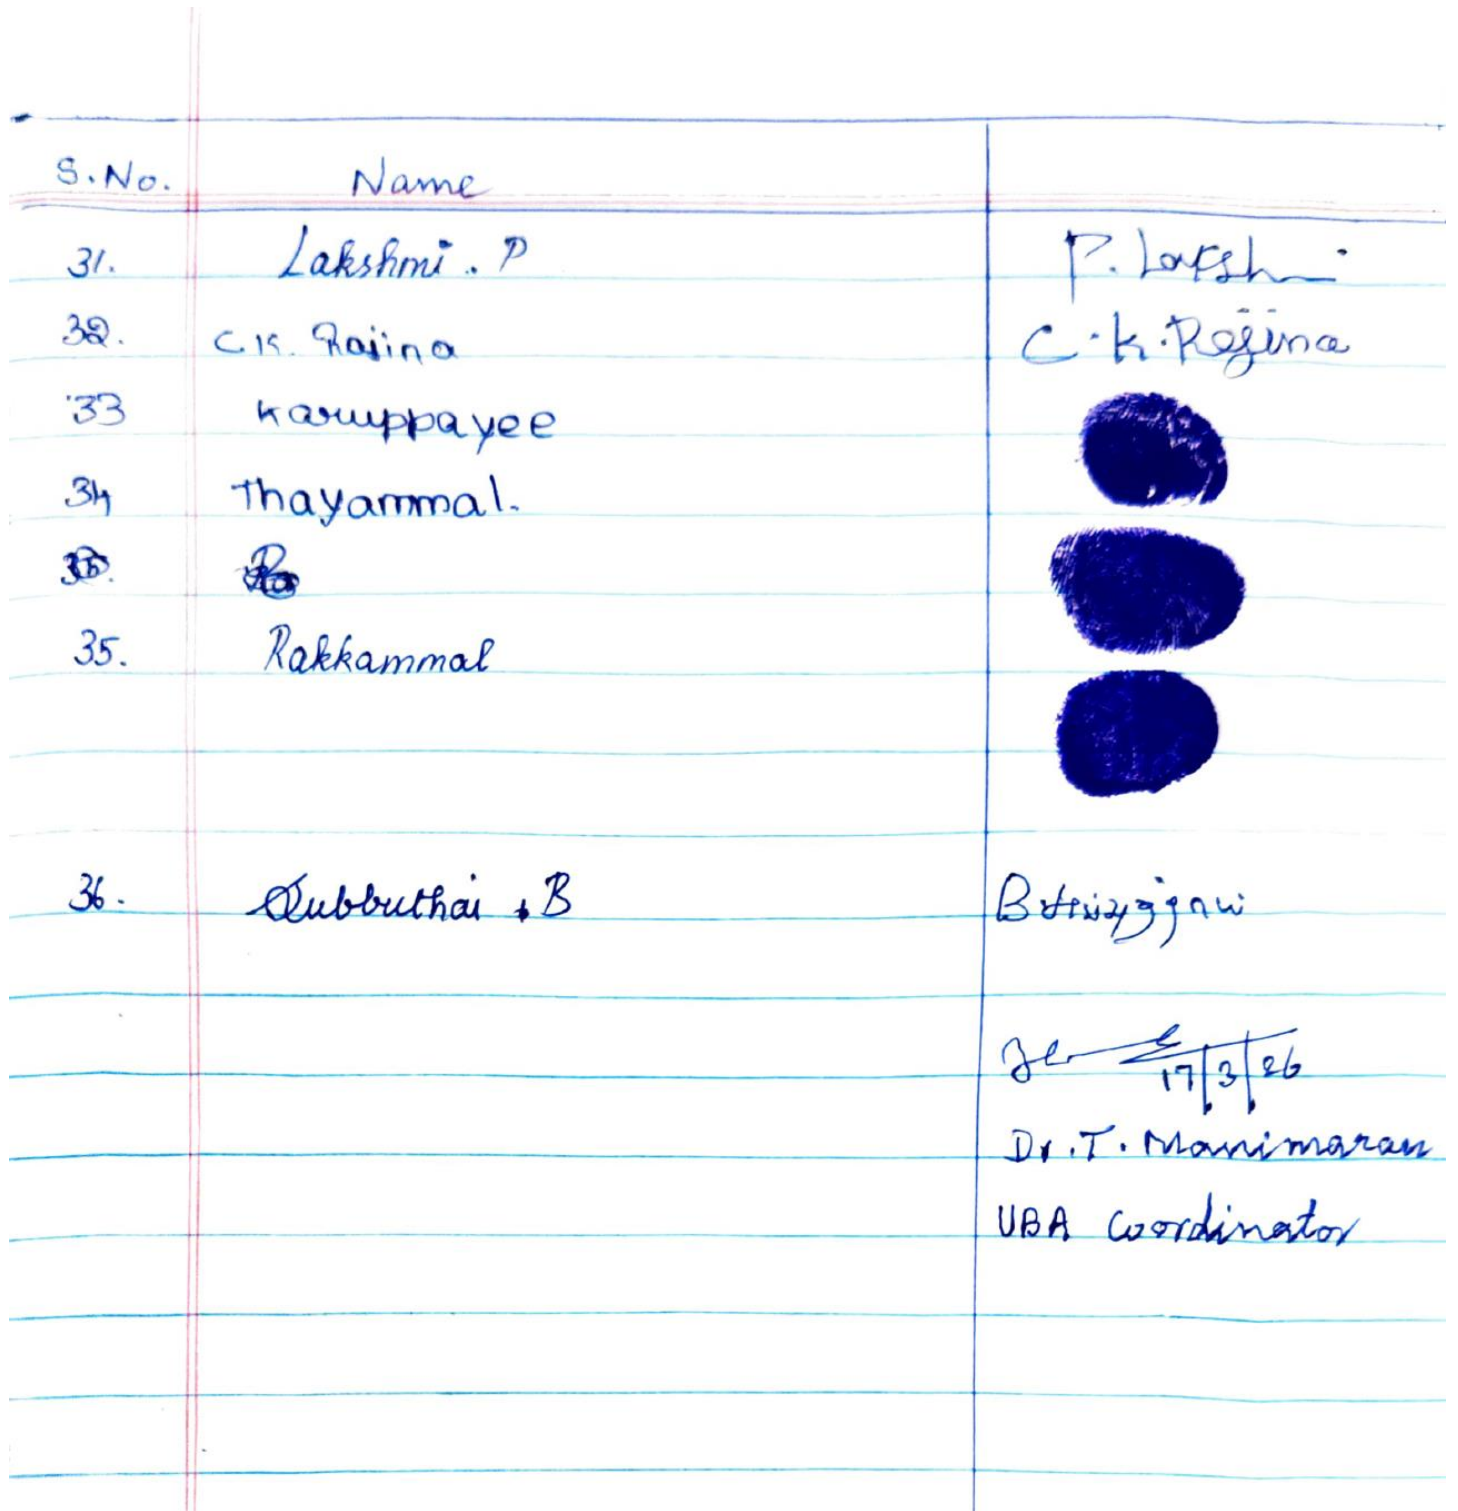 S.No. Name
31. Lakshmi . P P. Lakshmi
32. C.K. Rajina C.K.Rejina
33 Karuppayee
34 Thayammal.
35. Rakkammal
36. Subbuthai . B B சுப்புத்தாய்
17/3/26
Dr.T. Manimaran
UBA Coordinator